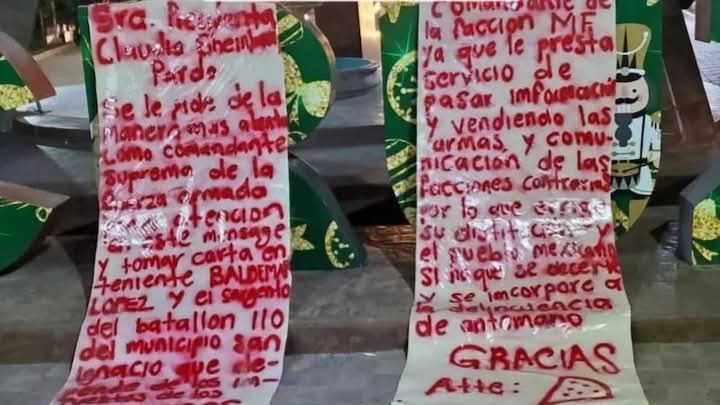 Sra. Presidenta
Claudia Sheinbaum
Pardo
Se le pide de la
manera mas atenta
como comandante
suprema de la
fuerza armada
atencion
este mensage
y tomar carta en
teniente BALDEMAR
LOPEZ y el sargento
del batallon 110
del municipio san
ignacio que
de los
de los
Comandante de
la faccion MF
ya que le presta
servicio de
pasar imformación
y vendiendo las
armas, y comu-
nicación de las
facciones contrarias
por lo que exige
su distitucion y
el pueblo mexicano
SI no que se decerte
y se imcorpore a
la delincuencia
de antomano
GRACIAS
Atte: